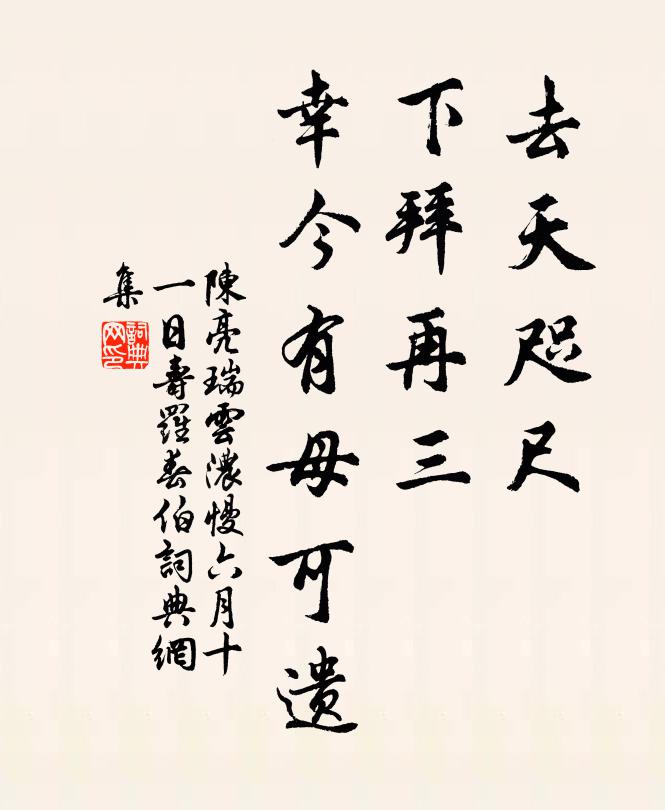 去天咫尺
下拜再三
幸今有母可遗
陳亮瑞雲濃慢六月十
一日壽羅春伯詞典網
集
詞典
网印